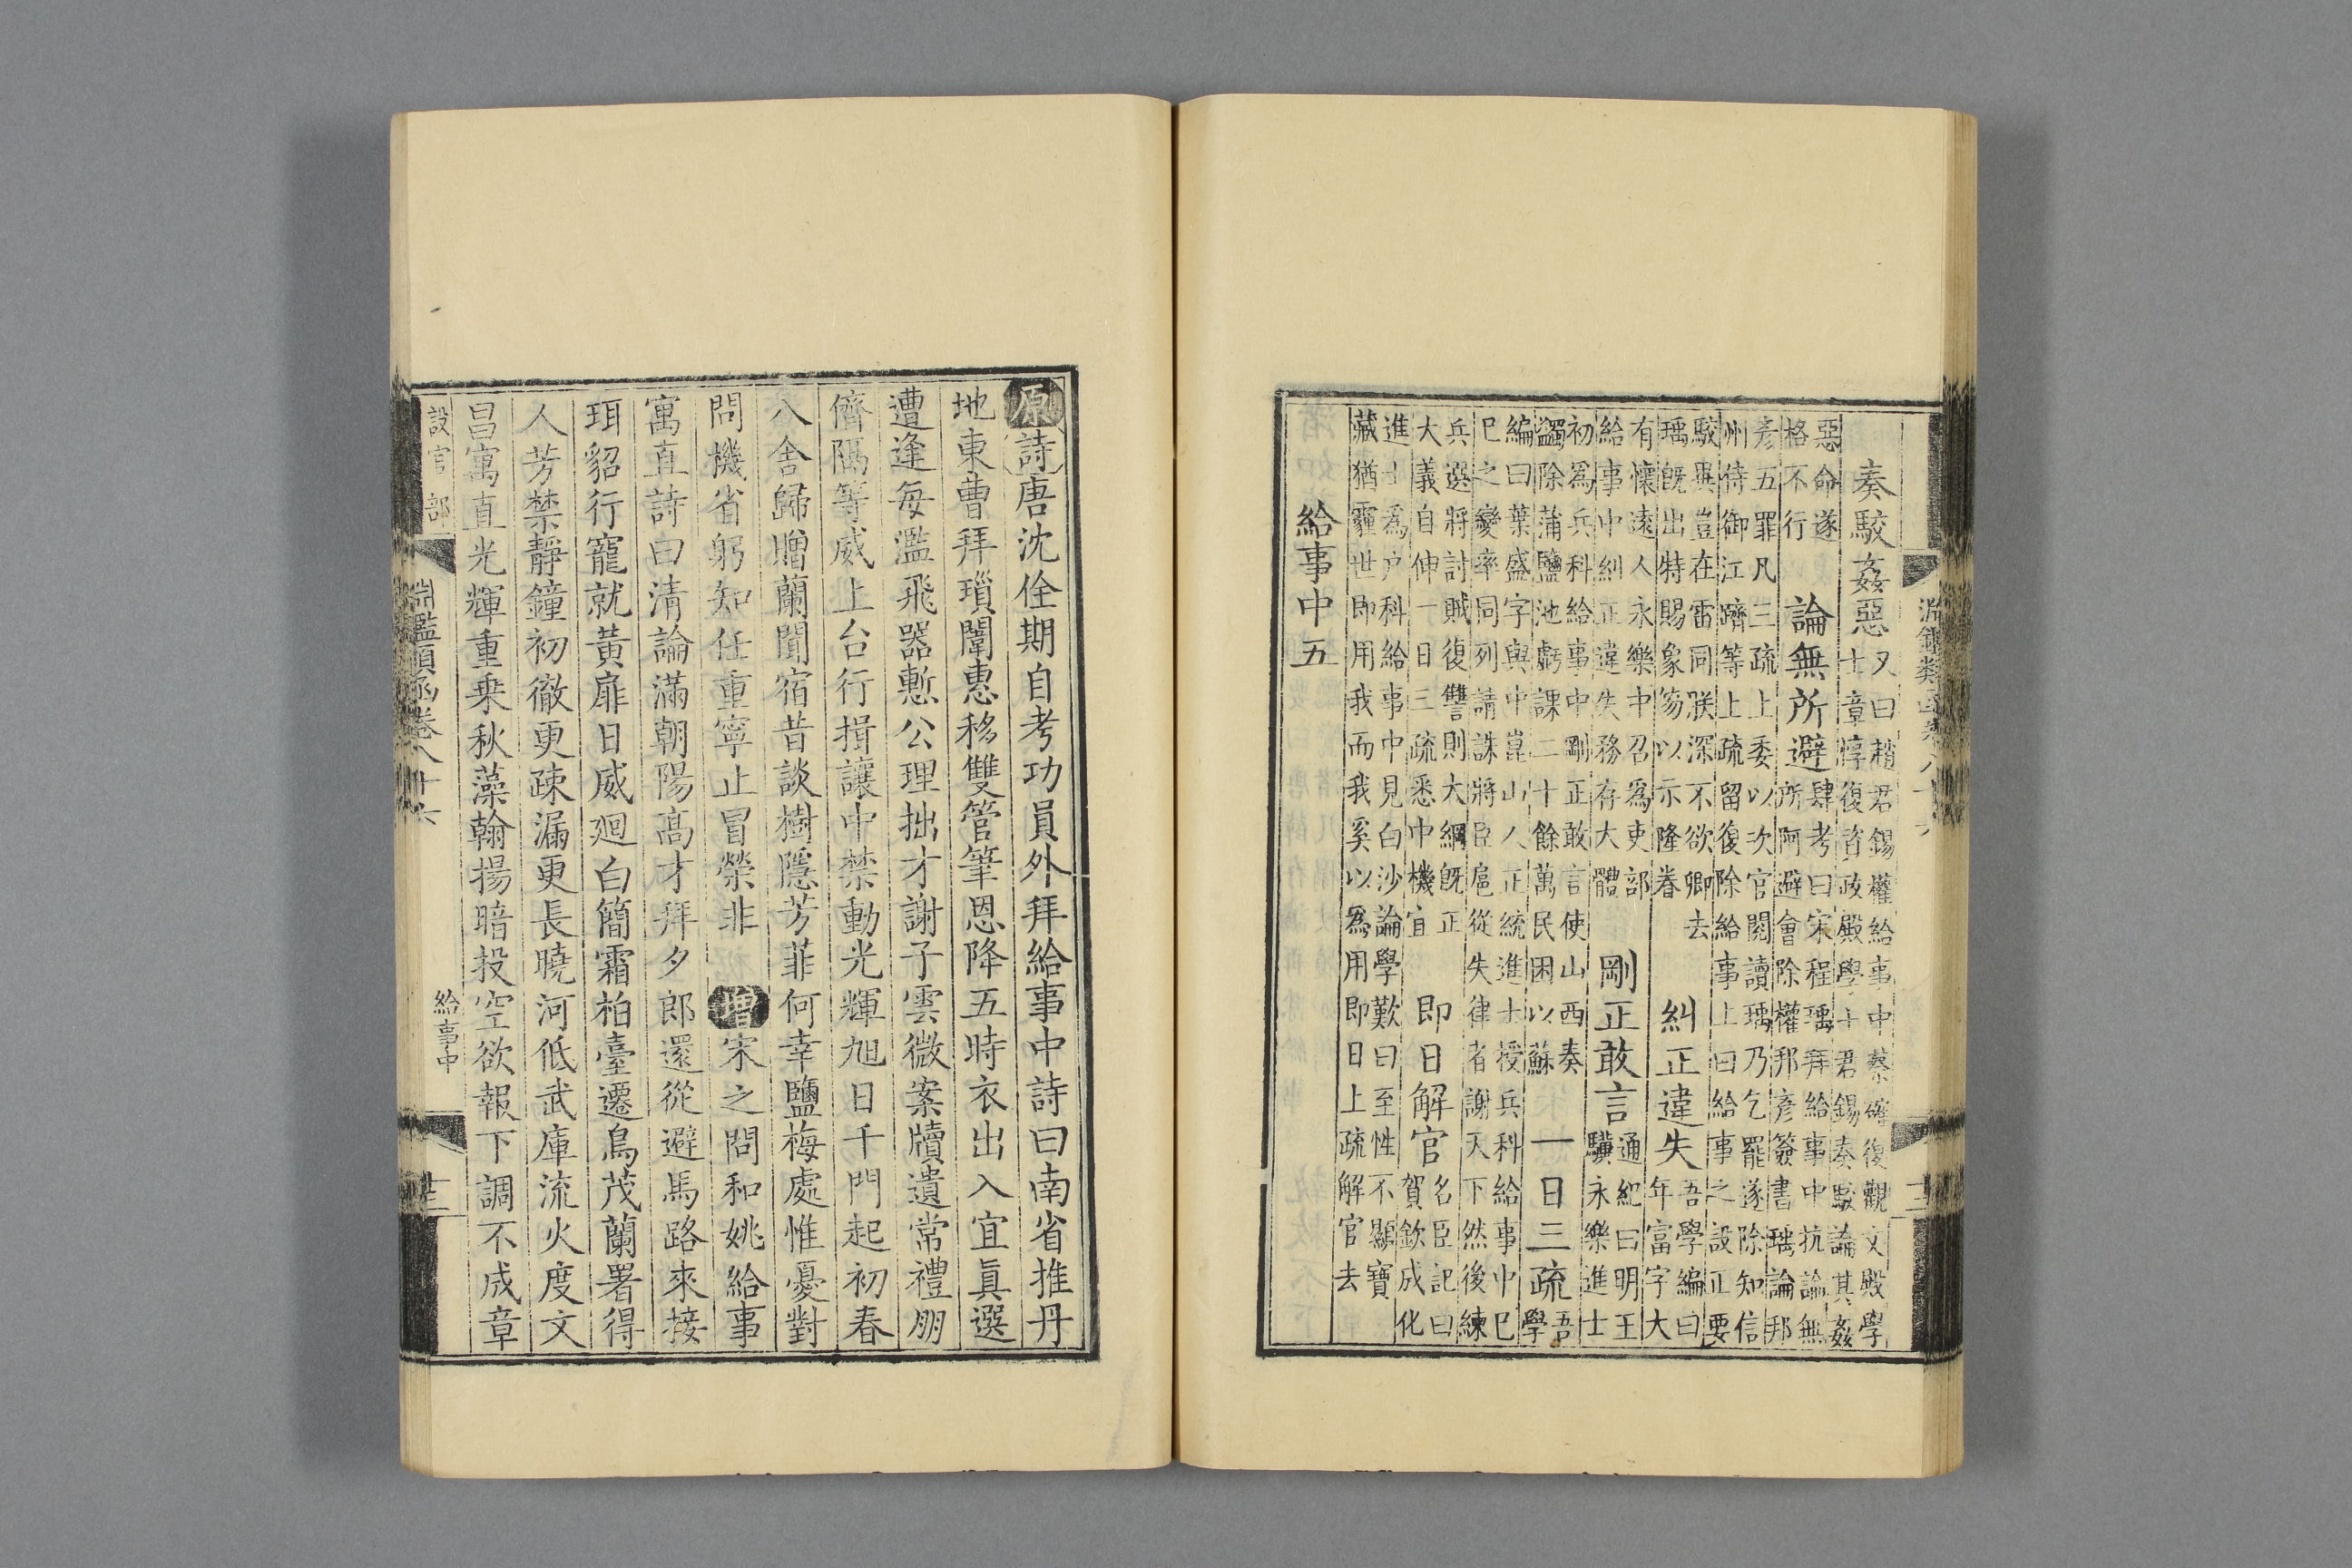 淵鑑類函卷八十六
奏駁姦惡
又曰趙君錫權給事中蔡確復觀文殿學
士章惇復資政殿學士君錫奏駁論其姦
惡命遂
格不行
論無所避
肆考曰宋程瑀拜給事中抗論無
所阿避會除權邦彥簽書瑀論邦
彥五罪凡三疏上委以次官閱讀瑀乃乞罷遂除知信
州侍御江躋等上疏留復除給事上曰給事之設正要
駁異豈在雷同朕深不欲卿去
瑀既出特賜象笏以示隆眷
糾正違失
吾學編曰
年富字大
有懷遠人永樂中召為吏部
給事中糾正違失務存大體
剛正敢言
通紀曰明王
驥永樂進士
初為兵科給事中剛正敢言使山西奏
蠲除蒲鹽池虧課二十餘萬民困以蘇
一日三疏
吾
學
編曰葉盛字與中崑山人正統進士授兵科給事中巳
巳之變率同列請誅將臣扈從失律者謝天下然後練
兵選將討賊復讐則大綱既正
大義自伸一日三疏悉中機宜
即日解官
名臣記曰
賀欽成化
進士為户科給事中見白沙論學歎曰至性不顯寶
藏猶霾世即用我而我奚以為用即日上疏解官去
給事中五
原詩唐沈佺期自考功員外拜給事中詩曰南省推丹
地東曹拜瑣闈惠移雙管筆恩降五時衣出入宜眞選
遭逢每濫飛器慙公理拙才謝子雲微案牘遺常禮朋
儕隔等威上台行揖讓中禁動光輝旭日千門起初春
八舍歸贈蘭聞宿昔談樹隱芳菲何幸鹽梅處惟憂對
問機省躬知任重寧止冒榮非 增宋之問和姚給事
寓直詩曰清論滿朝陽高才拜夕郎還從避馬路來接
珥貂行寵就黃扉日威廻白簡霜柏臺遷鳥茂蘭署得
人芳禁靜鐘初徹更疎漏更長曉河低武庫流火度文
昌寓直光輝重乗秋藻翰揚暗投空欲報下調不成章
設官部
淵鑑類函卷八十六
給事中